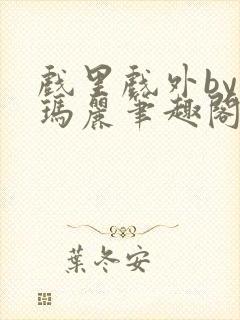 戲里戲外by
瑪麗筆趣閣
葉冬安